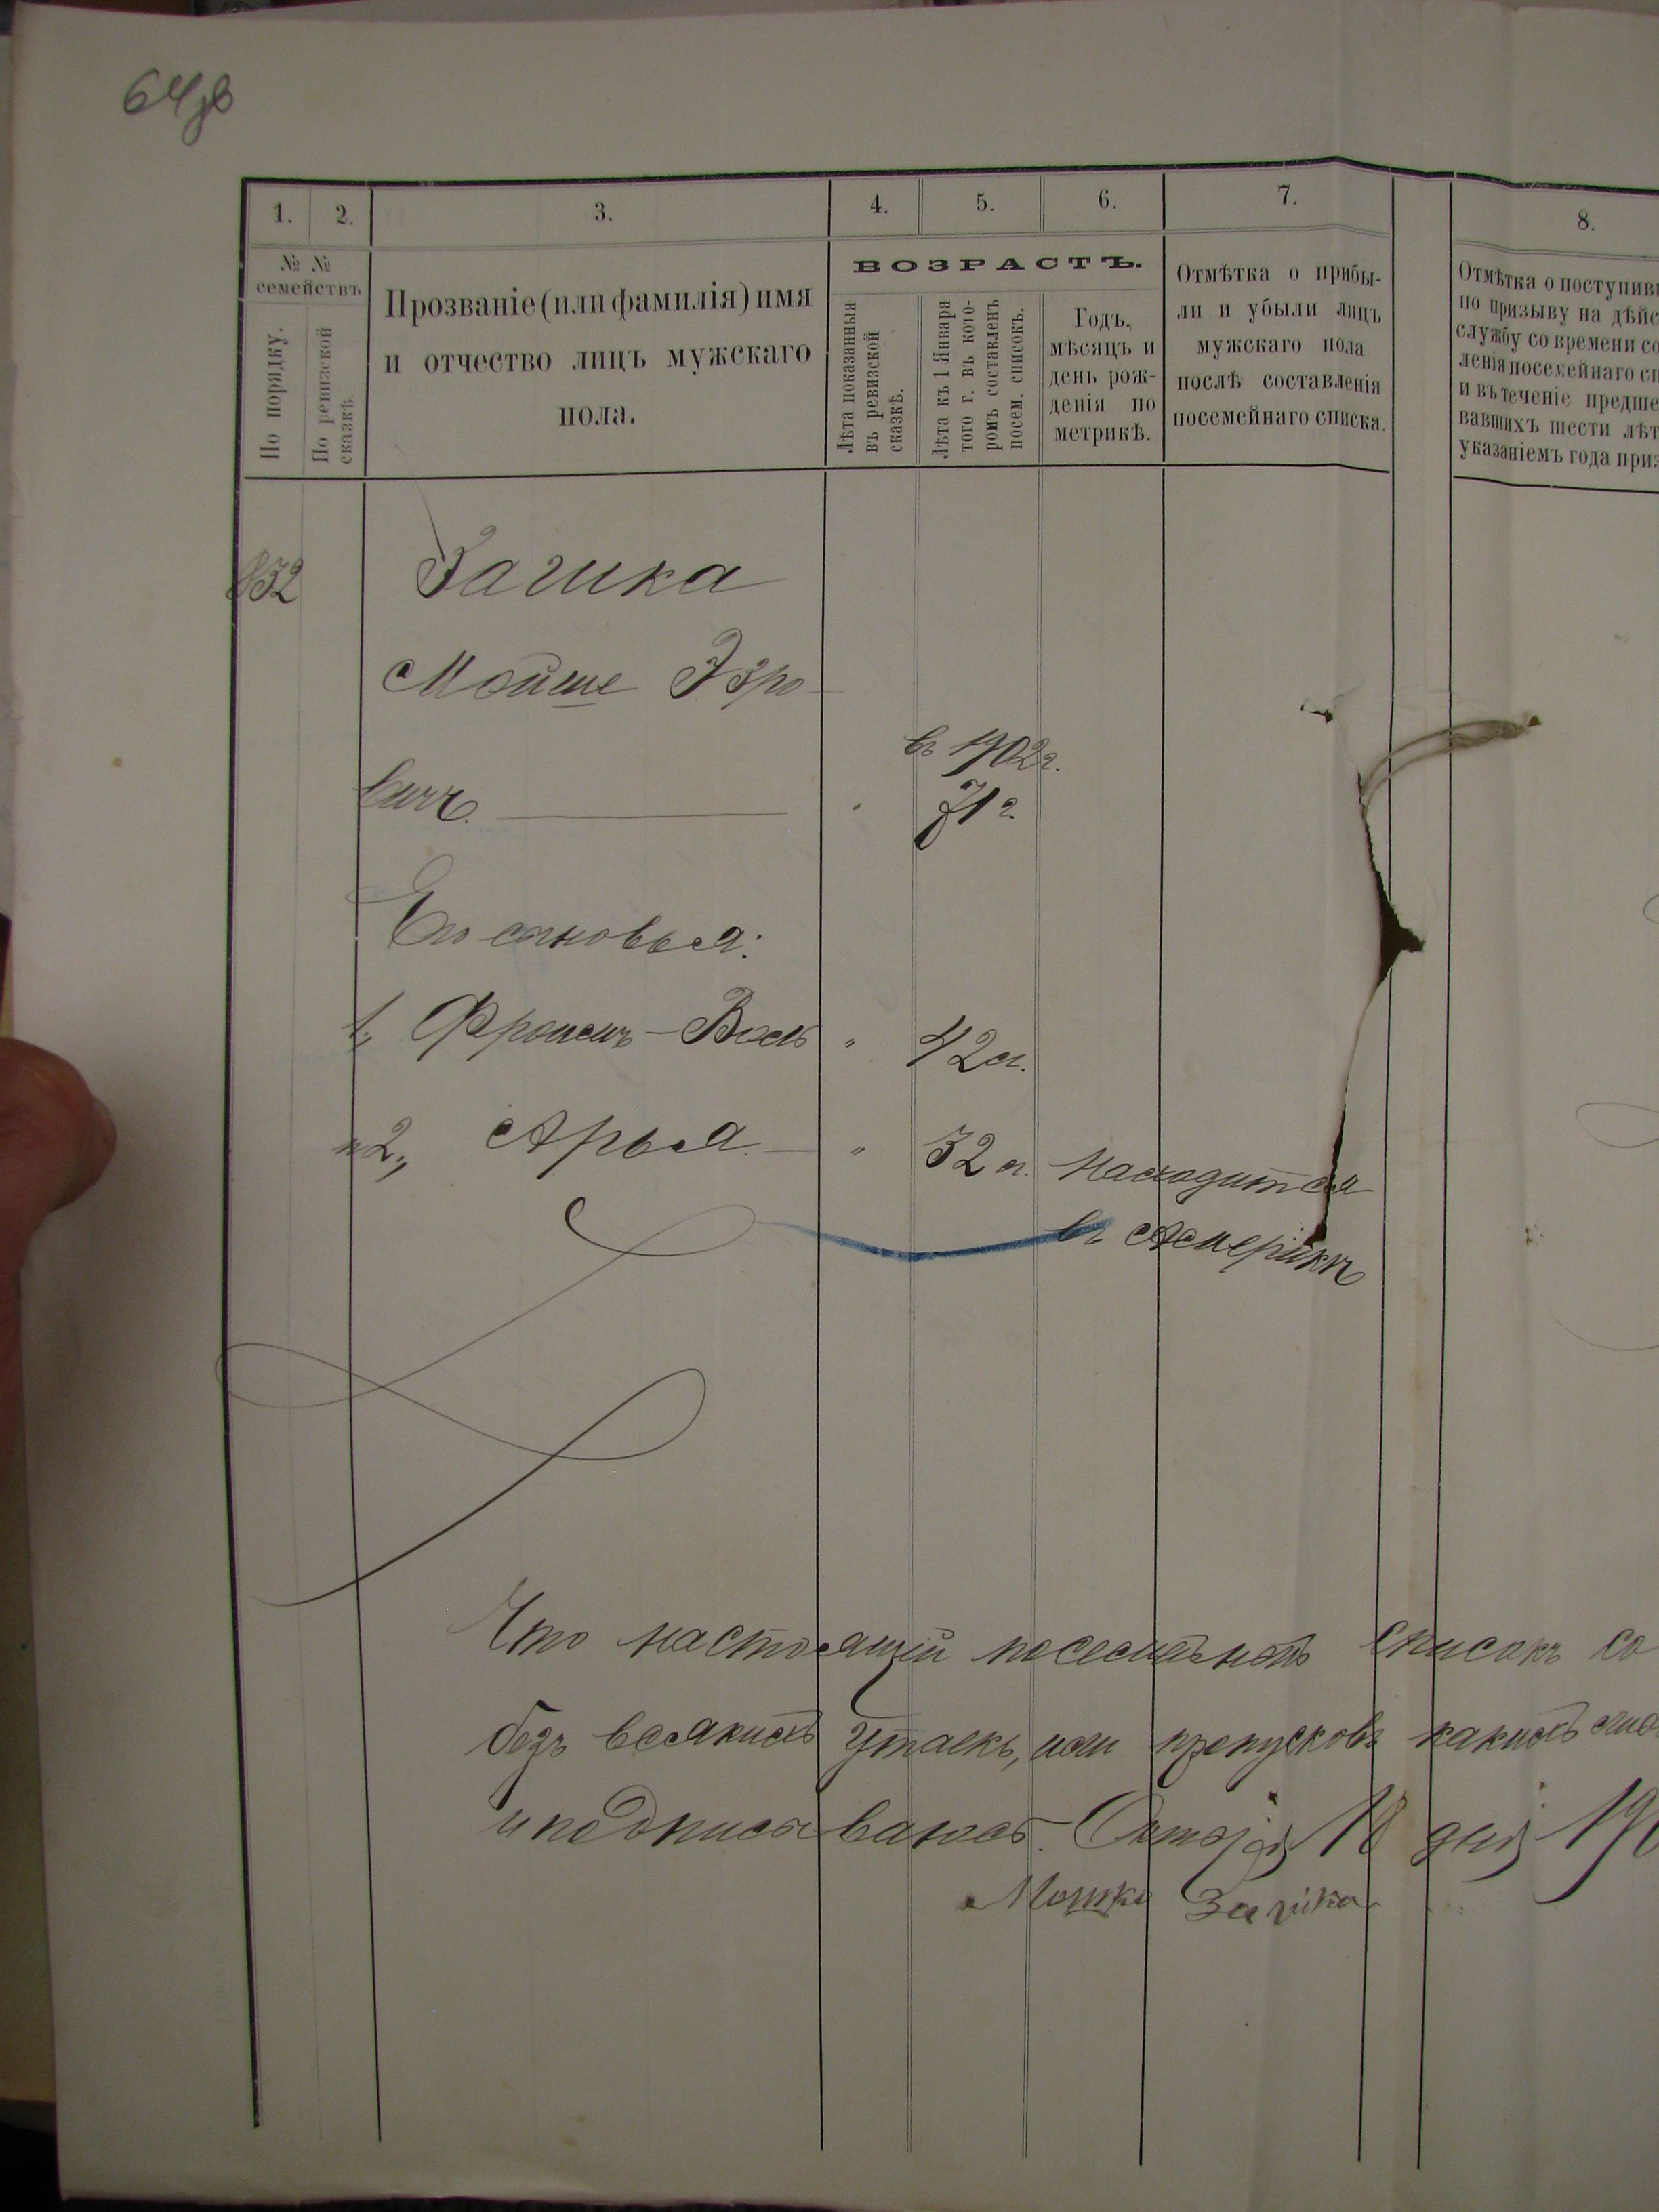 64
1.
2.
3.
4.
5.
6.
7.
8.
№ №
семействъ
По порядку.
По ревизской
сказкѣ.
Прозваніе (или фамилія) имя
и отчество лицъ мужскаго
пола.
ВОЗРАСТЪ.
Лѣта показанныя
въ ревизской
сказкѣ.
Лѣта къ 1 Января
того г. въ кото-
ромъ составленъ
посем. списокъ.
Годъ,
мѣсяцъ и
день рож-
денія по
метрикѣ.
Отмѣтка о прибы-
ли и убыли лицъ
мужскаго пола
послѣ составленія
посемейнаго списка.
Отмѣтка о поступив
по призыву на дѣйс
службу со времени со
ленія посемейнаго сп
и въ теченіе предше
вавшихъ шести лѣт
указаніемъ года приз
832
Загика
Мойше Эзро-
вичъ.
въ 1902 г.
71 г.
Его сыновья:
1, Фроимъ-Волъ " 42 л.
2, Арья " 32 л. находится
въ Америкѣ
Что настоящій посемейный списокъ со
безъ всякихъ утаекъ, или пропусковъ какихъ либо
и подписываюсь. Октября 18 дня 190
Мошко Загика